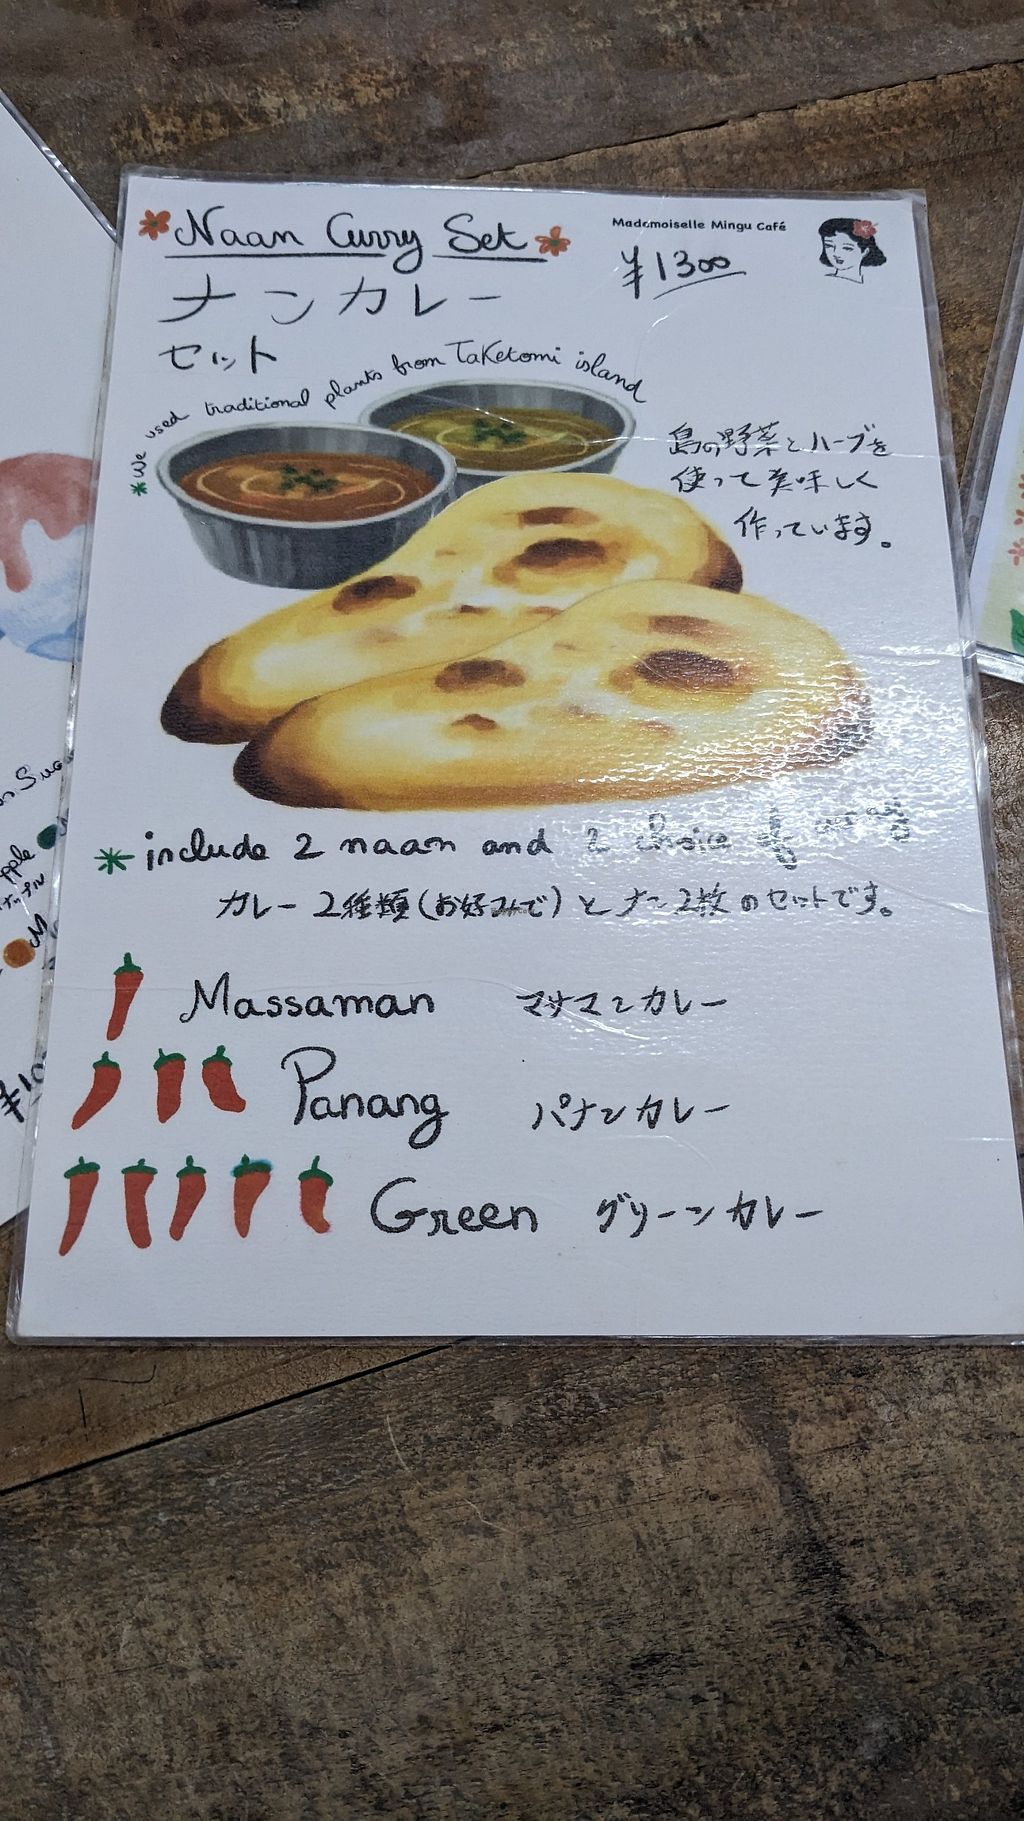 Naan Curry Set
Mademoiselle Mingu Café
¥1300
ナンカレー
セット
*We used traditional plants from Taketomi island
島の野菜とハーブを
使って美味しく
作っています。
* include 2 naan and 2 choice of curry
カレー 2種類(お好みで)とナン2枚のセットです。
Massaman マサマンカレー
Panang パナンカレー
Green グリーンカレー